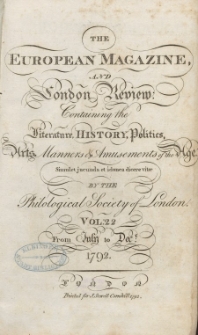 THE
EUROPEAN MAGAZINE,
AND
London Review;
Containing the
Literature, HISTORY, Politics,
Arts, Manners & Amusements of the Age.
Simul et jucunda et idonea dicere vitæ
BY THE
Philological Society of London.
VOL. 22
From July to Decr.
1792.
LONDON
Printed for J. Sewell Cornhill 1792.